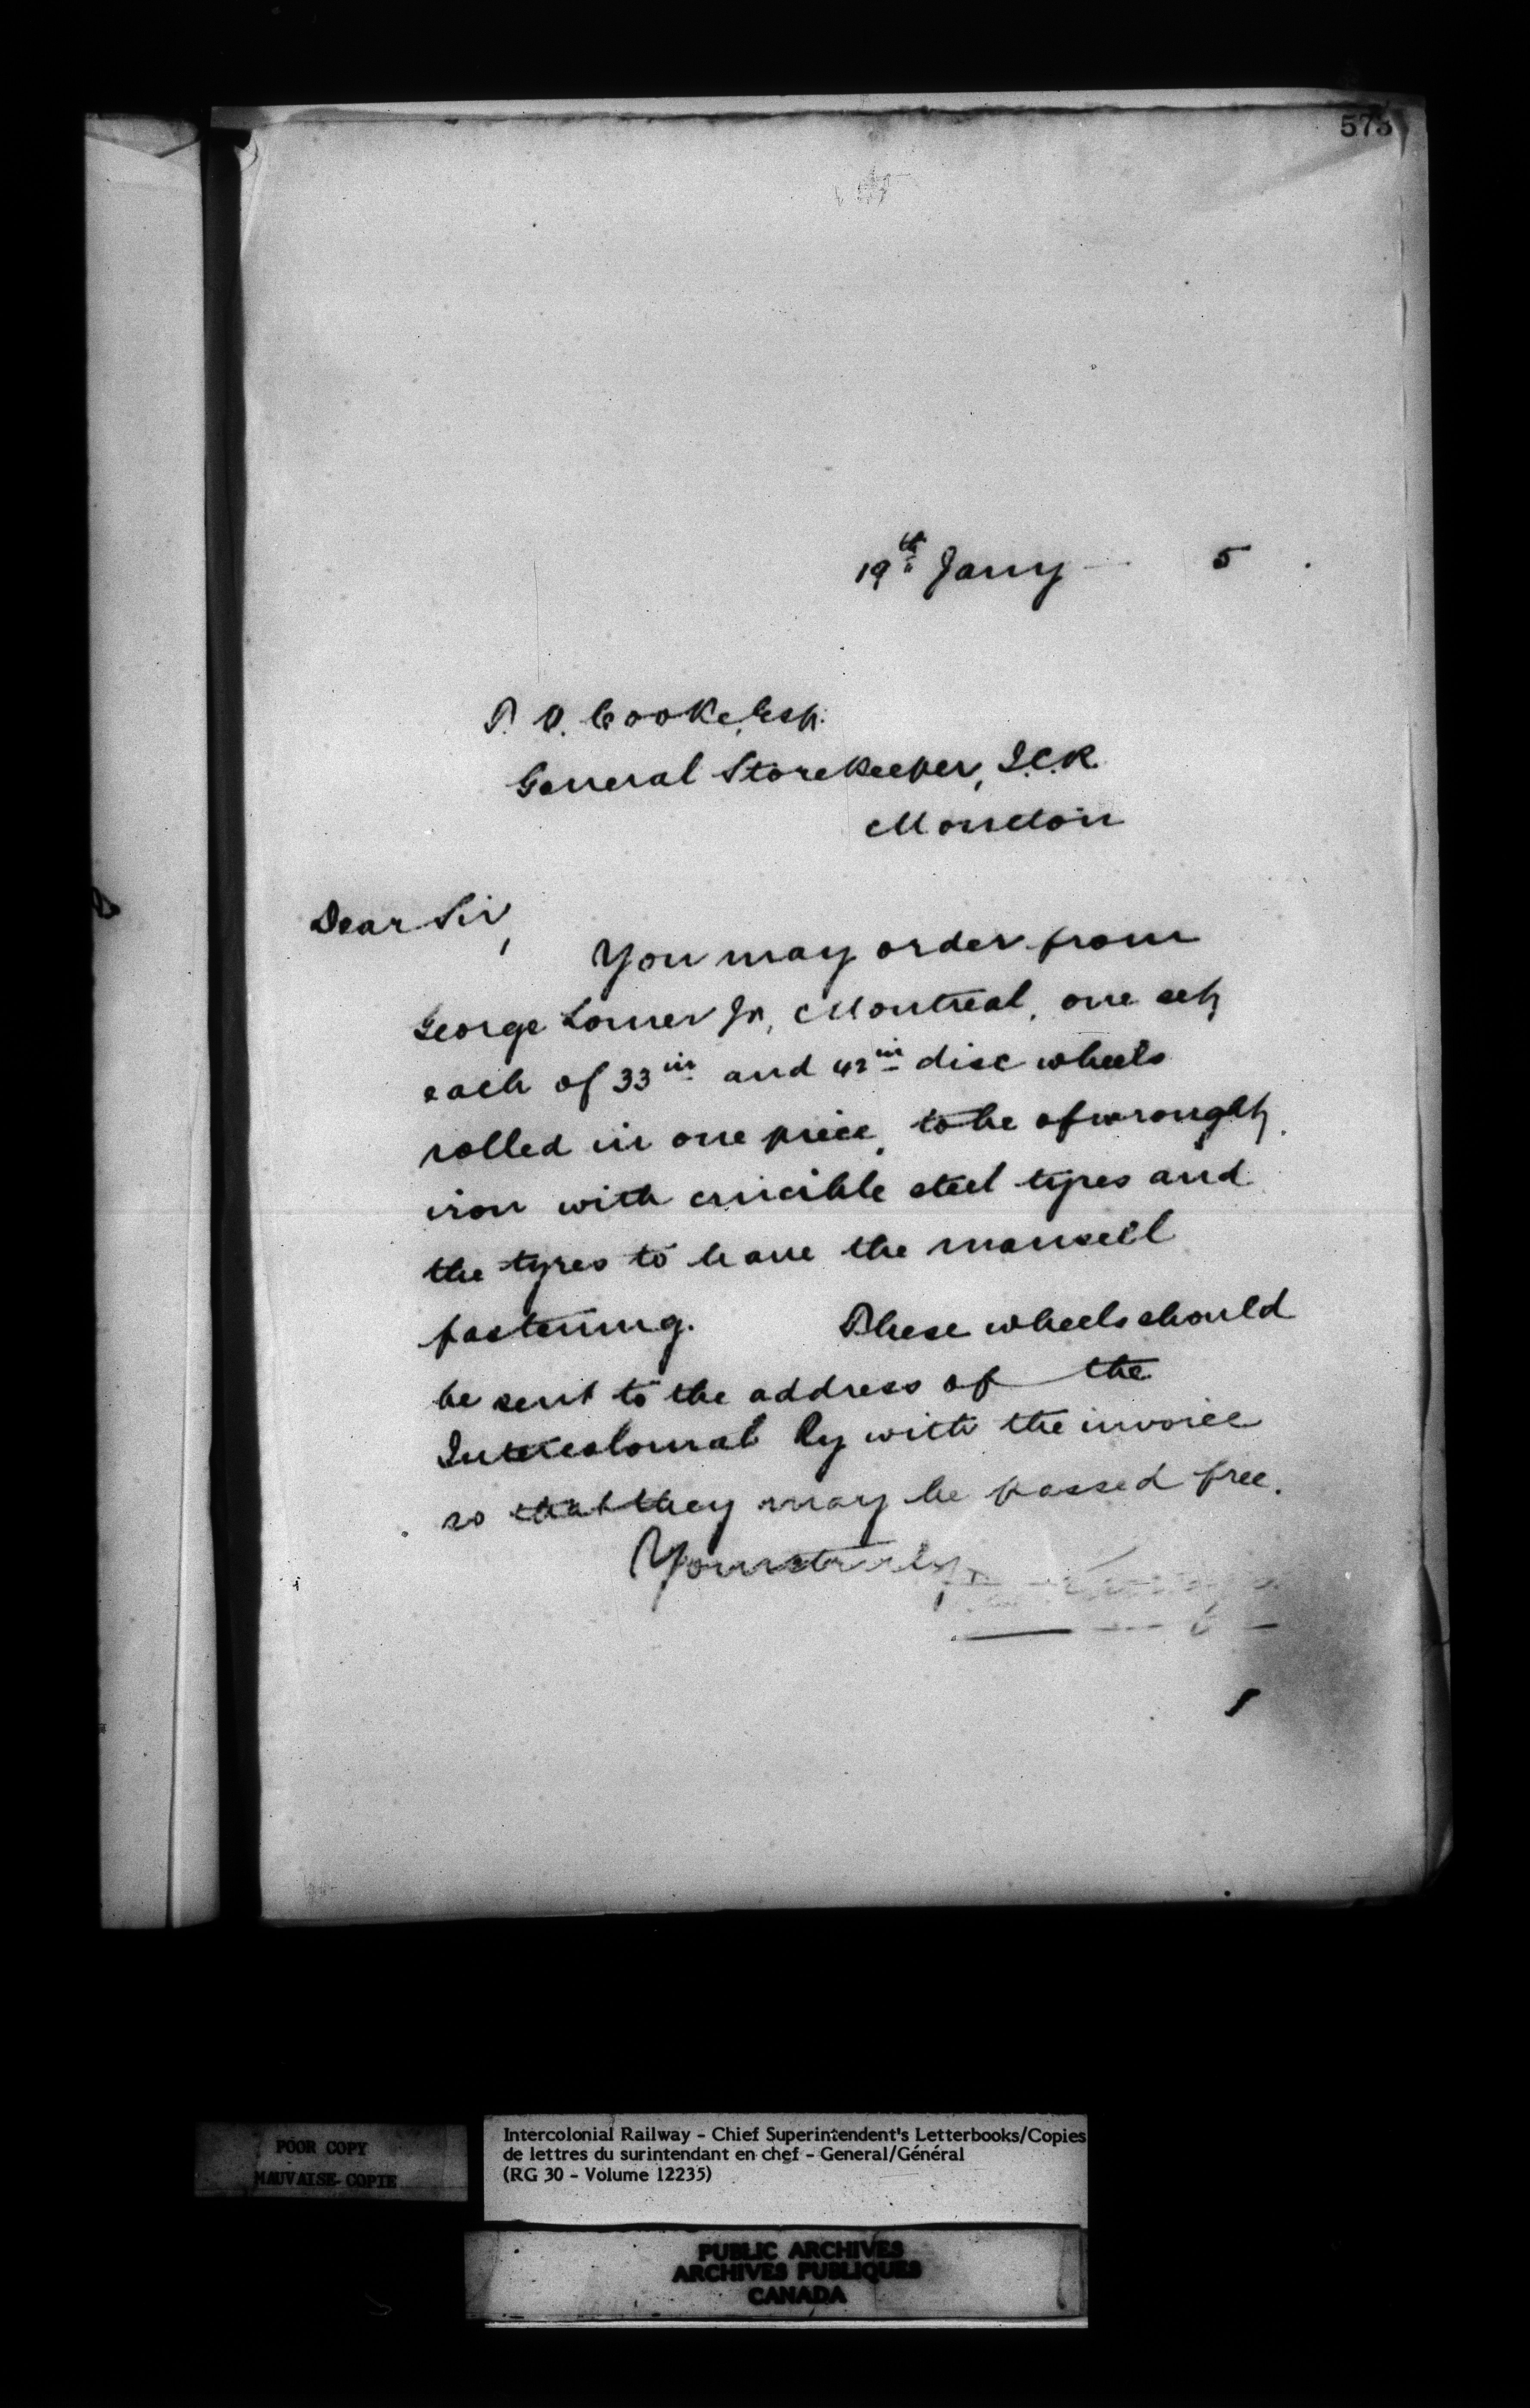 573
19th Jany 5
T. V. Cooke, Esq.
General Storekeeper, I.C.R.
Moncton
Dear Sir,
You may order from
George Lomer Jr, Montreal, one set
each of 33 in and 42 in disc wheels
rolled in one piece, to be of wrought
iron with crucible steel tyres and
the tyres to have the mansell
fastening. These wheels should
be sent to the address of the
Intercolonial Ry with the invoice
so that they may be passed free.
Yours truly
POOR COPY
MAUVAISE COPIE
Intercolonial Railway - Chief Superintendent's Letterbooks/Copies
de lettres du surintendant en chef - General/Général
(RG 30 - Volume 12235)
PUBLIC ARCHIVES
ARCHIVES PUBLIQUES
CANADA